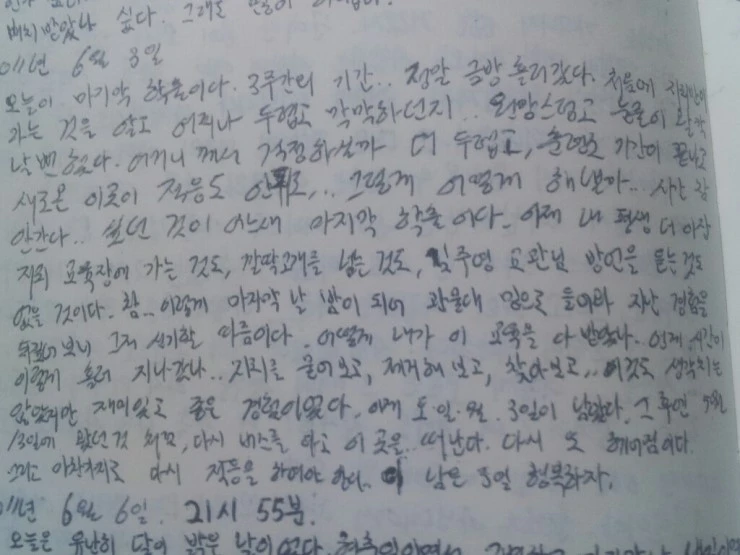 배치받았나 싶다. 그래도
011년 6월 3일
오늘이 마지막 학출이다. 3주간의 기간.. 정말 금방 흘러갔다. 처음에
가는 것을 알고 어찌나 두렵고 막막하던지.. 원망스럽고 눈물이 왈칵
날 뻔 했다. 어머니께서 걱정하실까 더 두렵고, 훈련소 기간이 끝나고
새로운 이곳이 적응도 안되고,.. 그렇게 어떻게 해보아... 시간 참
안간다.. 싶던 것이 어느새 마지막 학출이다. 이제 내 평생 더 이상
지뢰 교육장에 가는 것도, 깔딱고개를 넘는 것도, 김주영 교관님 방언을 듣는 것도
없을 것이다. 참.. 이렇게 마지막 날 밤이 되어 관물대 앞으로 들어와 지난 경험을
보니 그저 신기할 따름이다. 어떻게 내가 이 교육을 다 받았나.. 언제 시간이
이렇게 흘러 지나갔나.. 지뢰를 묻어보고, 제거해 보고, 찾아보고,.. 이것도 생각지는
않았지만 재미있고 좋은 경험이었다. 이제 토.일.월. 3일이 남았다. 그 후면 5월
13일에 왔던것 처럼, 다시 버스를 타고 이 곳을.. 떠난다. 다시 또 헤어짐이다.
그리고 마찬가지로 다시 적응을 하여야 한다. 남은 3일 행복하자.
011년 6월 6일. 21시 55분.
오늘은 유난히 달이 밝은 날이었다.